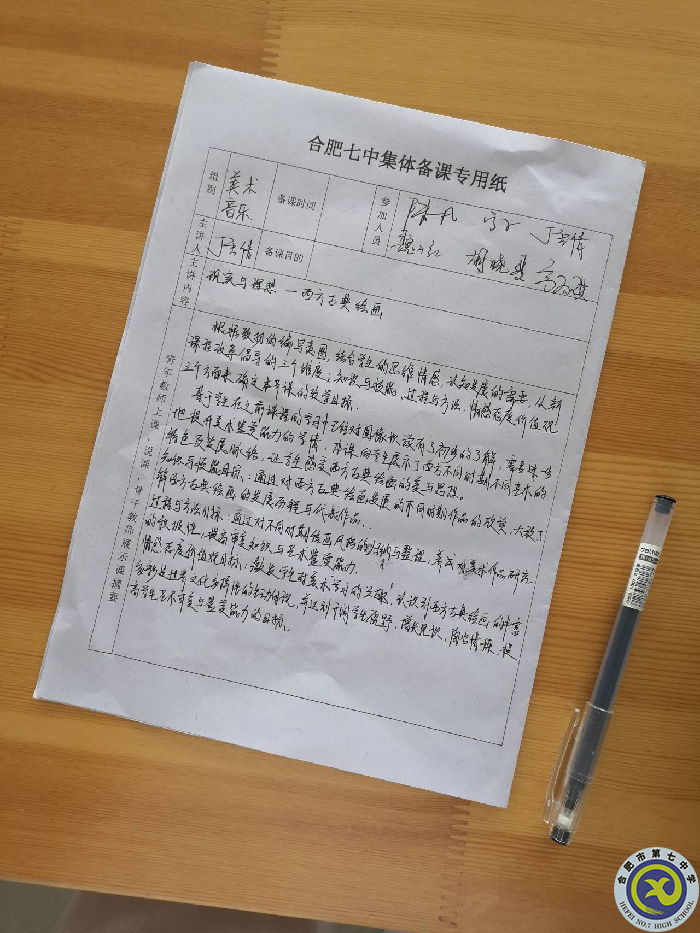 合肥七中集体备课专用纸
组别 美术 音乐 备课时间 参加人员
主讲人 备课目的
主讲内容 现实与理想 — 西方古典绘画
青年教师上课、说课、评汗教师展示课摘要
根据教材的编写意图，结合学生的思维情感、认知发展的需要，从新
课程改革倡导的三个维度：知识与技能、过程与方法、情感态度价值观
三个方面来确定本节课的教学目标。
基于学生在之前课程的学习中已经对图像识读有了初步的了解，需要逐步
他提升美术鉴赏能力的学情，本课向学生展示了西方不同时期不同艺术的
特色及发展脉络，让学生感受西方古典绘画的美与思想。
知识与技能目标：通过对西方古典绘画发展的不同时期作品的欣赏，大致了
解西方古典绘画的发展历程与代表作品。
过程与方法目标：通过对不同时期绘画风格的归纳与整理，美术作品研究
的积极性，提高审美知识与美术鉴赏能力。
情感态度价值观目标：激发学生对美术学习的兴趣，认识到西方古典绘画的丰富
多彩是世界文化多样性的生动体现，并达到开阔学生视野，增长见识，陶冶情操，提
高学生艺术审美与鉴赏能力的目标。
合肥市第七中学
HEFEI NO.7 HIGH SCHOOL